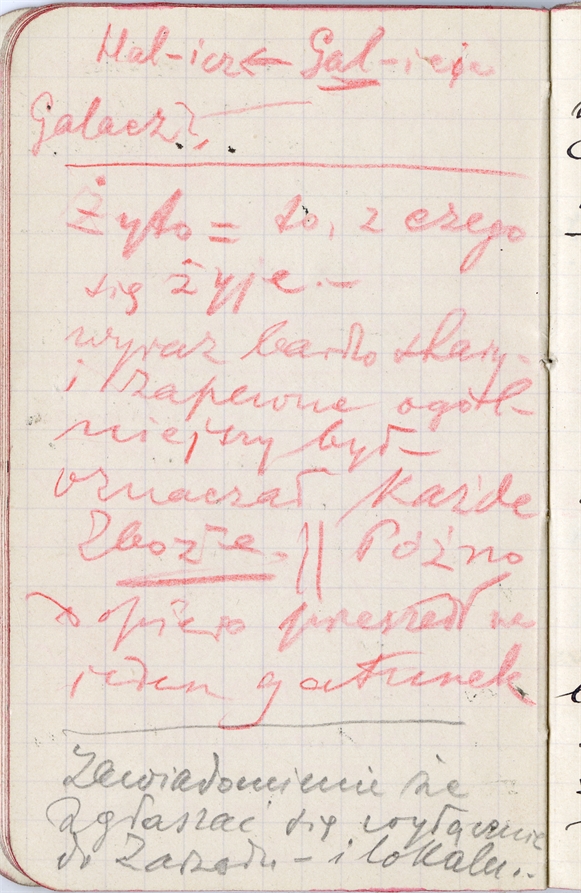 Hal-icz ← Gal-icja
Galacz?
Żyto = to, z czego
się żyje. –
wyraz bardzo stary –
i zapewne ogól-
niejszy był –
oznaczał każde
Zboże. || Późno
dopiero przeszedł na
jeden gatunek
Zawiadomienie że
zgłaszać się wyłącznie
do Zarządu – i lokalu..